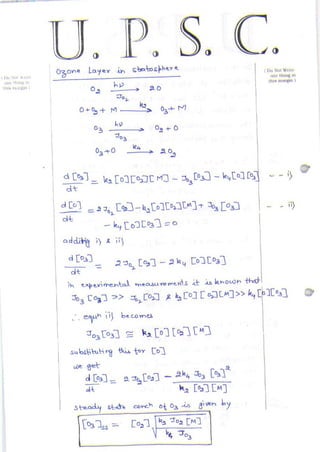 U. P. S. C.
( Do Not Write
any thing in
this margin )
( Do Not Write
any thing in
this margin )
Ozone Layer in stratosphere
O₂ hν → 2O
J₀₂
O + O₂ + M k₂ → O₃ + M
O₃ hν → O₂ + O
J₀₃
O₃ + O k₄ → 2O₂
d[O₃]/dt = k₂[O][O₂][M] - J₀₃[O₃] - k₄[O][O₃] - - i)
d[O]/dt = 2J₀₂[O₂] - k₂[O][O₂][M] + J₀₃[O₃] - - ii)
- k₄[O][O₃] = 0
adding i) & ii)
d[O₃]/dt = 2J₀₂[O₂] - 2k₄[O][O₃]
in experimental measurements it is known that
J₀₃[O₃] >> J₀₂[O₂] & k₂[O][O₂][M] >> k₄[O][O₃]
∴ equn ii) becomes
J₀₃[O₃] ≅ k₂[O][O₂][M]
substituting this for [O]
we get
d[O₃]/dt = 2J₀₂[O₂] - 2k₄ J₀₃[O₃]² / k₂[O₂][M]
steady state concn of O₃ is given by
[O₃]ss = [O₂] √(k₂ J₀₂ [M] / k₄ J₀₃)